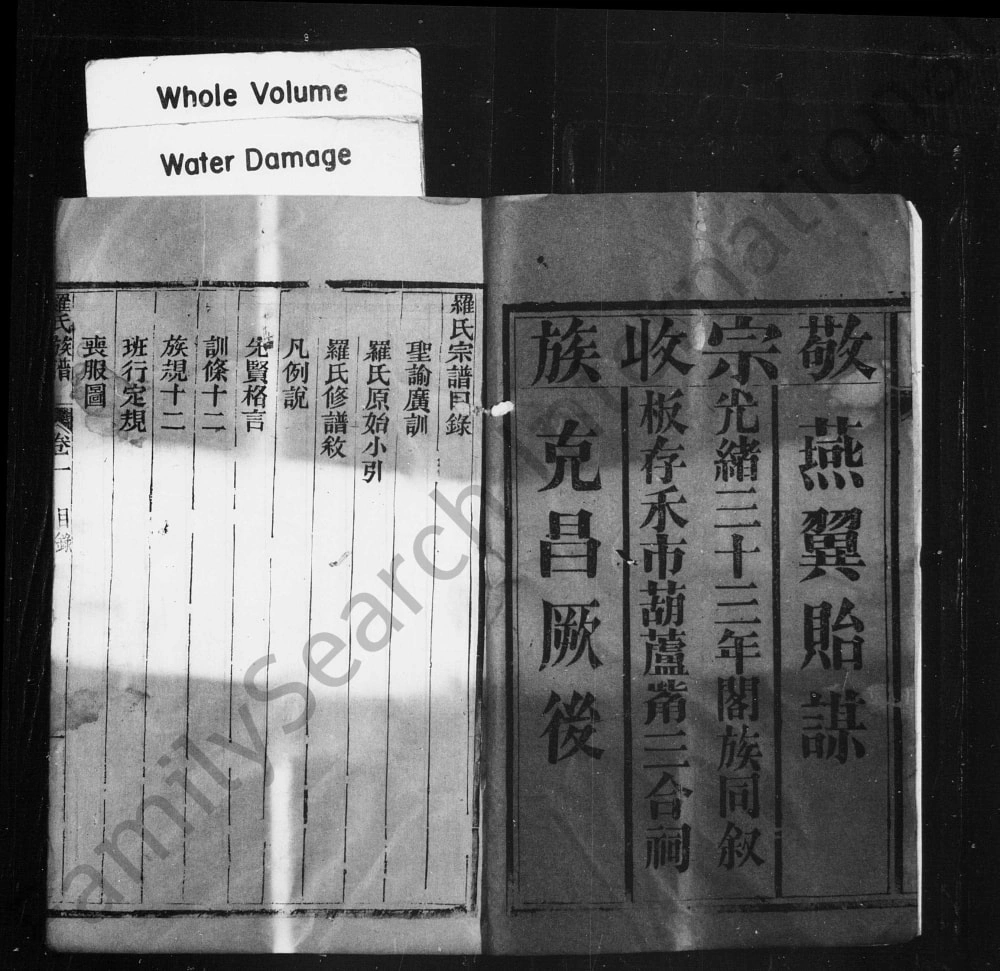 Whole Volume
Water Damage
敬宗收族
燕翼貽謀
光緒三十三年閤族同叙
板存禾市葫蘆喾三合祠
克昌厥後
羅氏宗譜目錄
聖諭廣訓
羅氏原始小引
羅氏修譜敘
凡例說
先賢格言
訓條十二
族規十二
班行定規
喪服圖
羅氏族譜 卷一 目錄
FamilySearch International